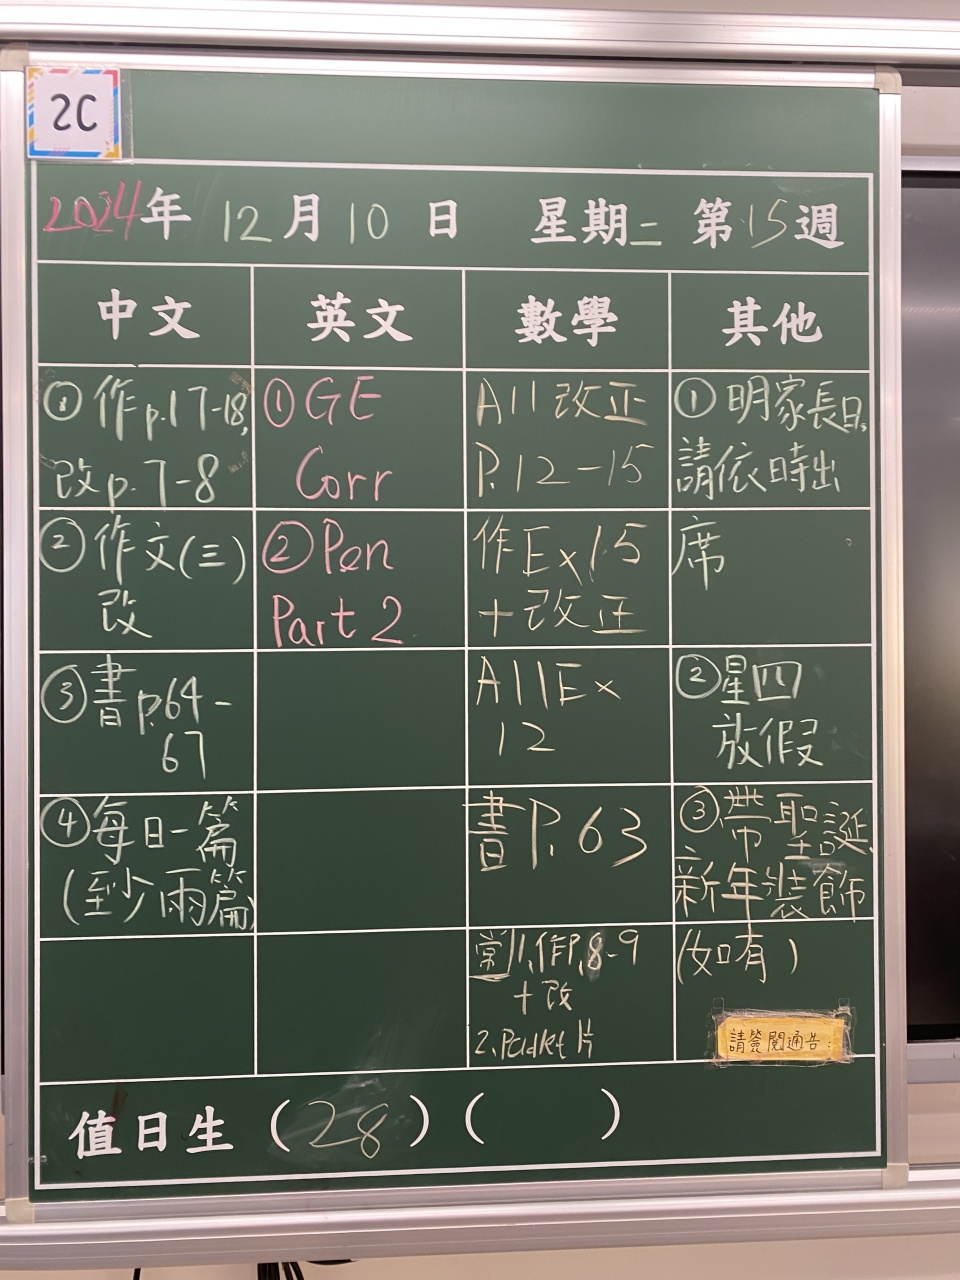 2C
2024年 12月10日 星期二 第15週
中文 英文 數學 其他
① 作p.17-18,
改p.7-8
② 作文(三)
改
③ 書p.64-
67
④ 每日一篇
(至少兩篇)
① GE
Corr
② Pen
Part 2
A11 改正
P.12-15
作Ex15
+改正
A11Ex
12
書P.63
常 1.作P.8-9
+改
2.Padlet片
① 明家長日,
請依時出
席
② 星四
放假
③ 帶聖誕、
新年裝飾
(如有)
請簽閱通告:
值日生 (28) ( )